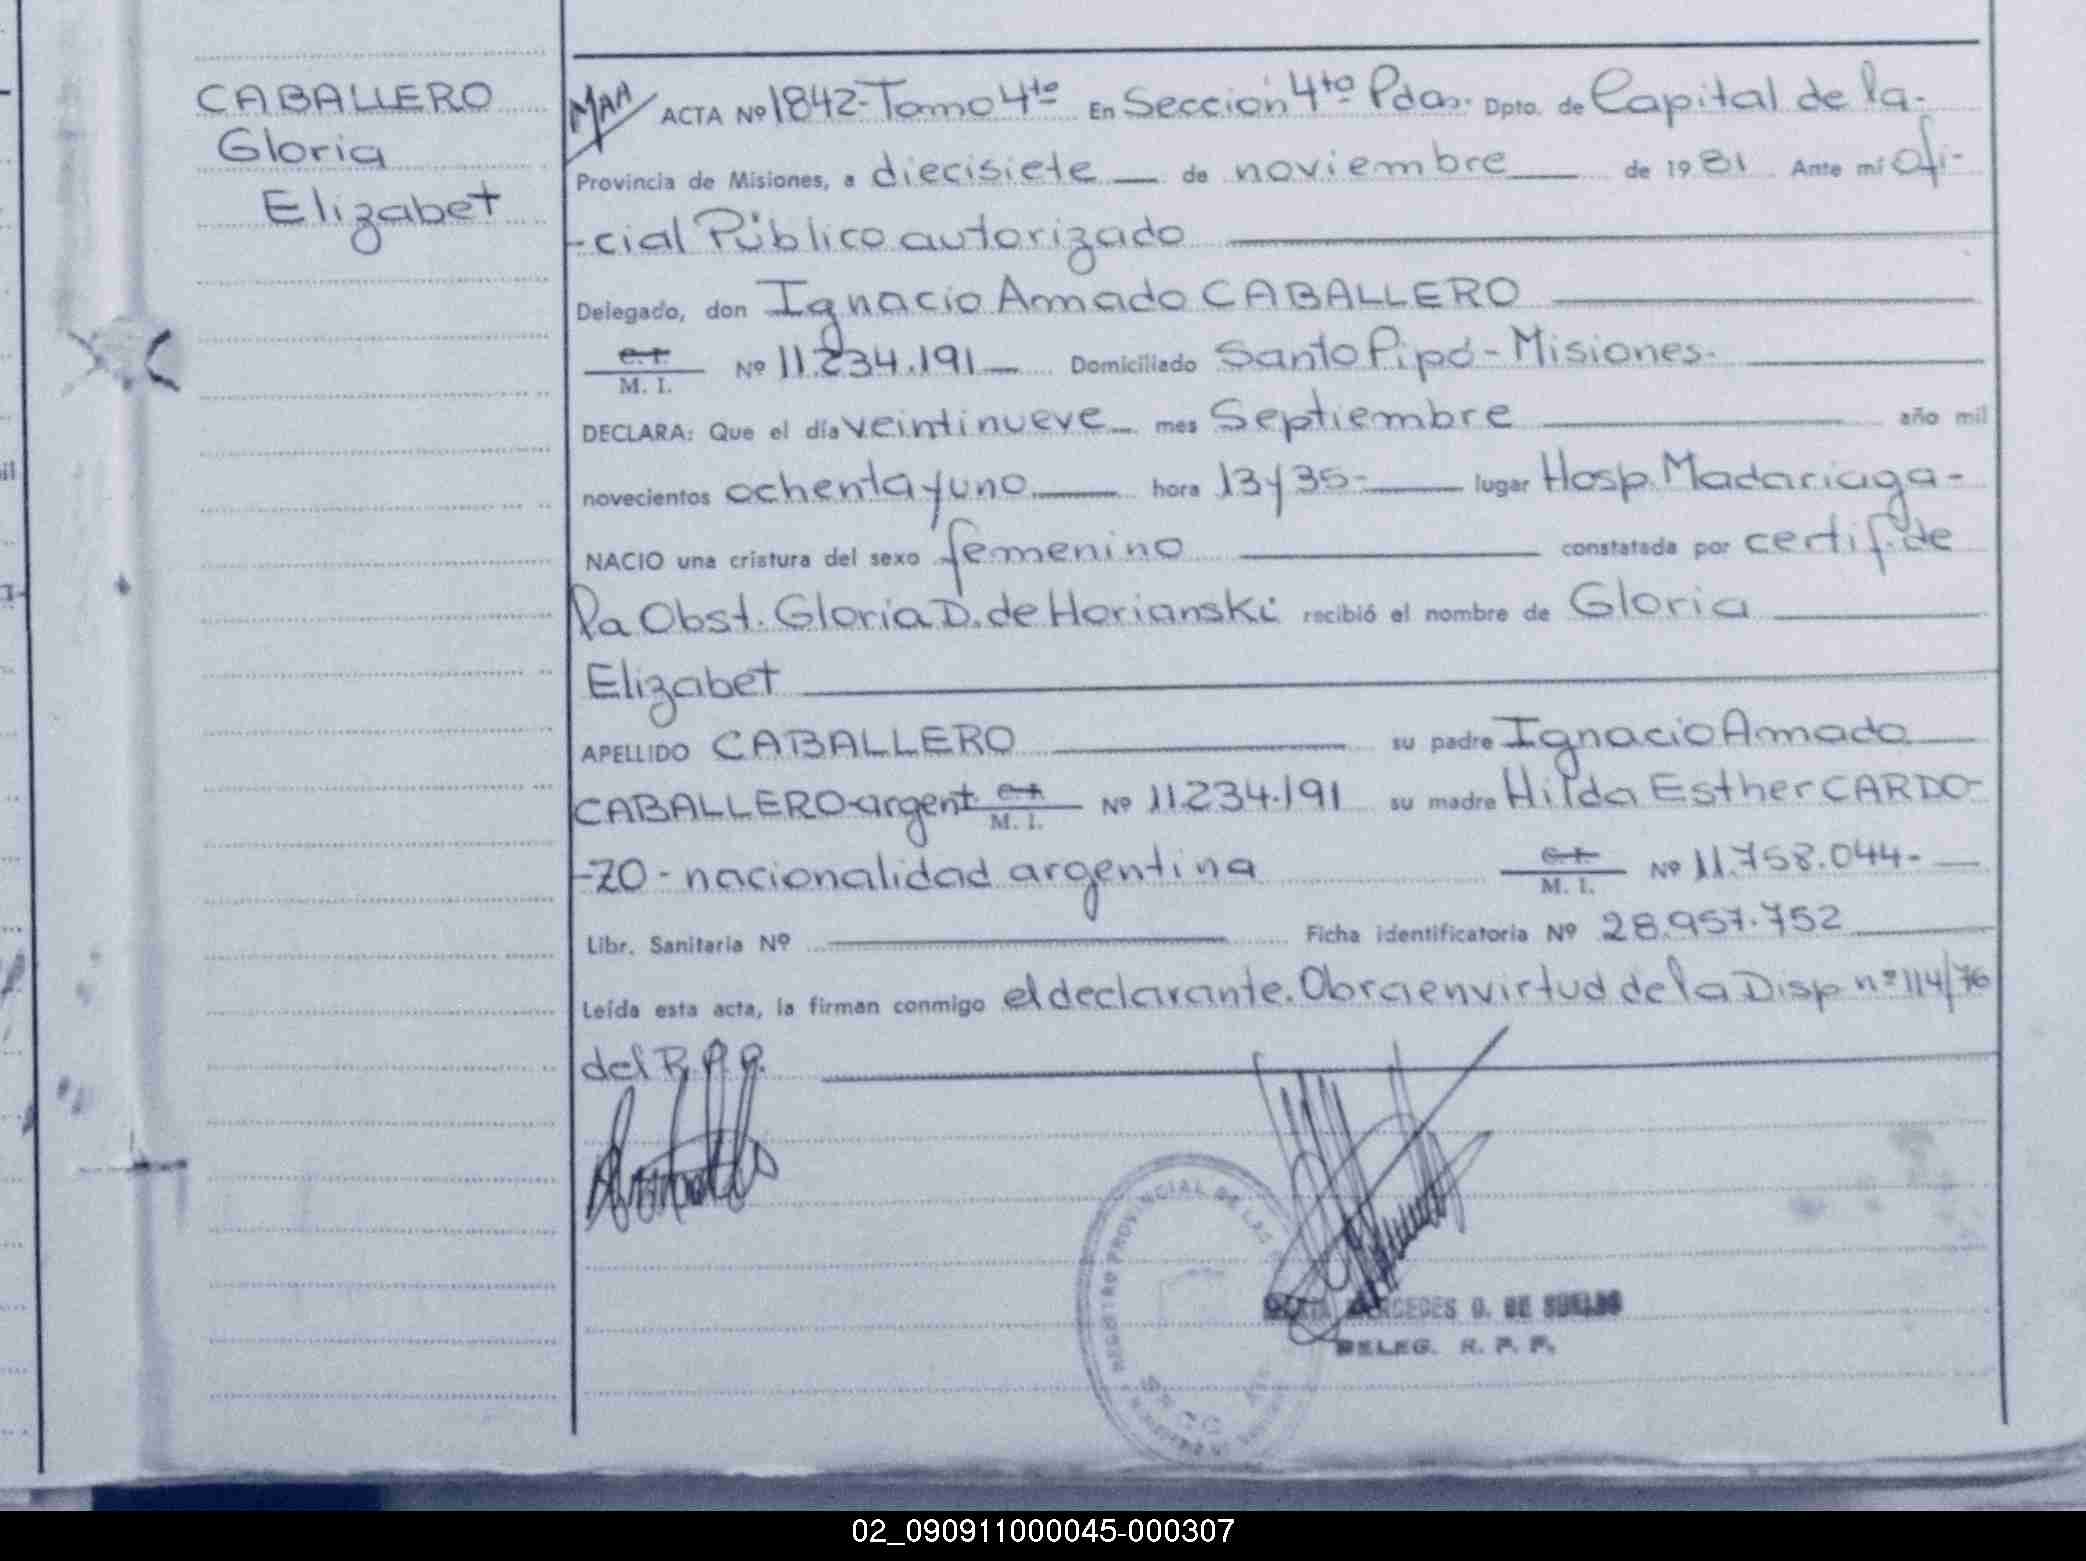 CABALLERO
Gloria
Elizabet
MAA ACTA Nº 1842-Tomo 4to En Sección 4ta Pdas. Dpto. de Capital de la-
Provincia de Misiones, a diecisiete de noviembre de 1981 Ante mí Ofi-
-cial Público autorizado
Delegado, don Ignacio Amado CABALLERO
C. I.
M. I. Nº 11.234.191 Domiciliado Santo Pipó-Misiones-
DECLARA: Que el día veintinueve mes Septiembre año mil
novecientos ochenta y uno hora 13 y 35- lugar Hosp. Madariaga-
NACIO una criatura del sexo femenino constatada por certif. de
la Obst. Gloria D. de Horianski recibió el nombre de Gloria
Elizabet
APELLIDO CABALLERO su padre Ignacio Amado
CABALLERO-argent. C. I. / M. I. Nº 11.234.191 su madre Hilda Esther CARDO-
-ZO-nacionalidad argentina C. I. / M. I. Nº 11.758.044-
Libr. Sanitaria Nº Ficha identificatoria Nº 28.957.752
Leída esta acta, la firman conmigo el declarante. Obra en virtud de la Disp nº 114/76
del R.P.P.
REGISTRO PROVINCIAL DE LAS
MERCEDES O. DE SUELDO
DELEG. R. P. P.
02_090911000045-000307